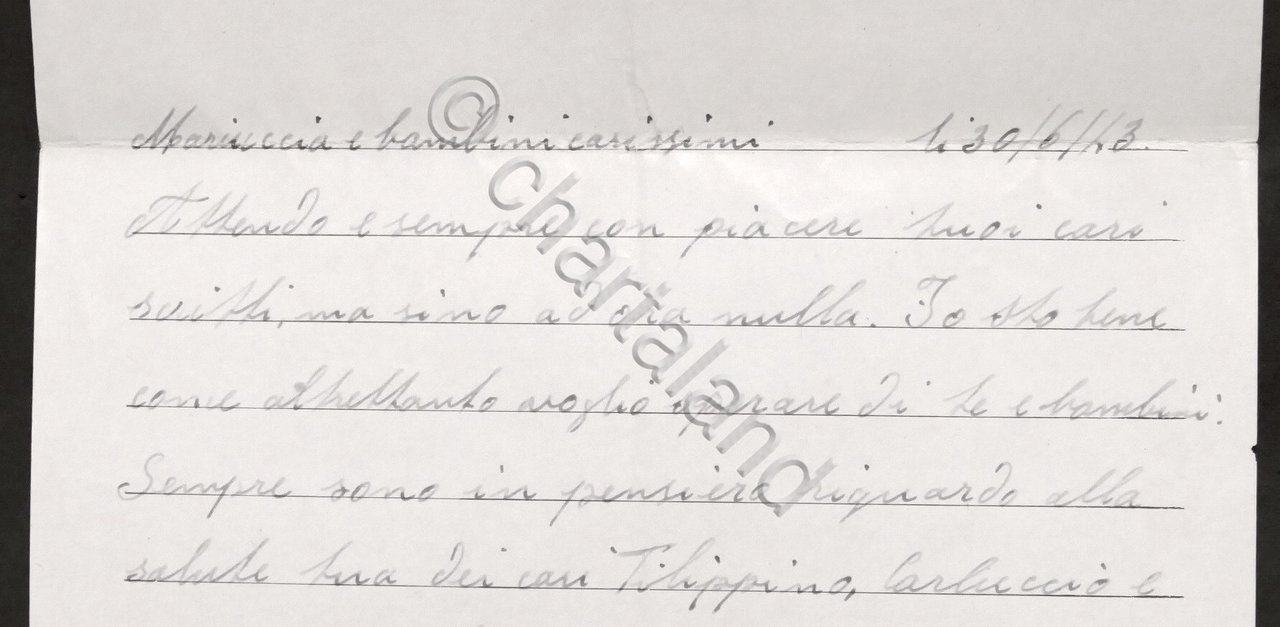 Mariuccia e bambini carissimi li 30/6/43.
Attendo e sempre con piacere tuoi cari
scitti, ma sino ad ora nulla. Io sto bene
come altrettanto voglio sperare di te e bambini.
Sempre sono in pensiero riguardo alla
salute tua dei cari Filippino, Carluccio e
© chartaland